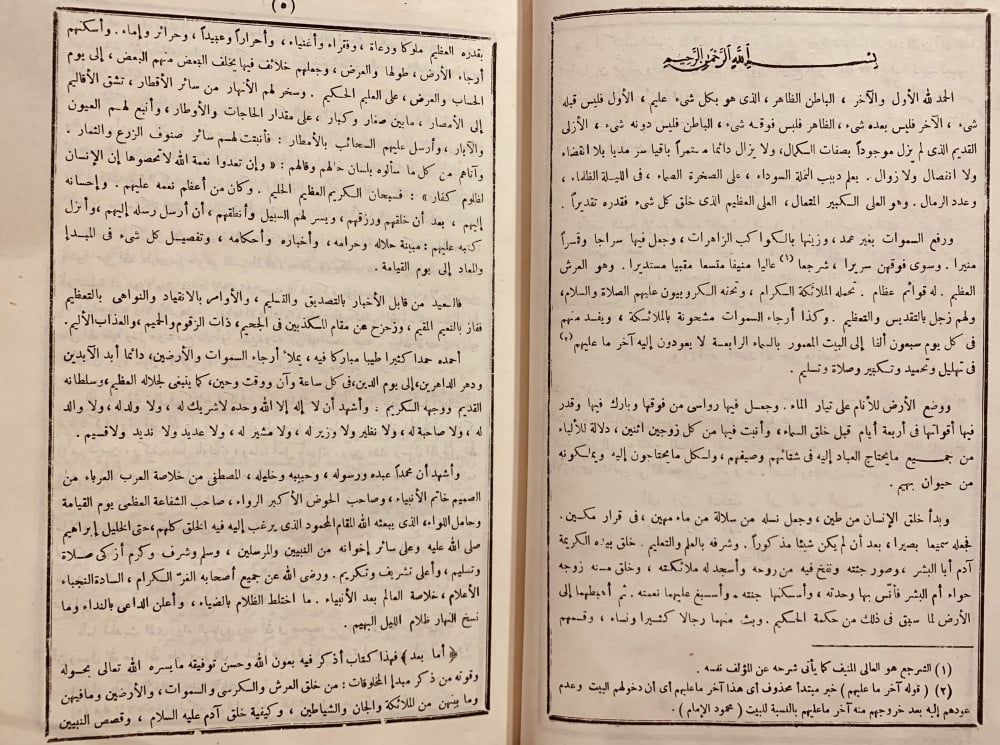 بسم الله الرحمن الرحيم
الحمد لله الأول والآخر ، الباطن الظاهر ، الذى هو بكل شىء عليم ، الأول فليس قبله
شىء ، الآخر فليس بعده شىء ، الظاهر فليس فوقه شىء ، الباطن فليس دونه شىء ، الأزلى
القديم الذى لم يزل موجوداً بصفات الكمال، ولا يزال دائما مستمراً باقيا سرمديا بلا انقضاء
ولا انفصال ولا زوال . يعلم دبيب النملة السوداء ، على الصخرة الصماء ، فى الليلة الظلماء ،
وعدد الرمال . وهو العلى الكبير المتعال ، العلى العظيم الذى خلق كل شىء فقدره تقديراً .
ورفع السموات بغير عمد ، وزينها بالكواكب الزاهرات ، وجعل فيها سراجا وقمراً
منيرا . وسوى فوقهن سريرا ، شرجعا (١) عاليا منيفا متسعا مقبيا مستديرا . وهو العرش
العظيم . له قوائم عظام . تحمله الملائكة الكرام ، وتحفه الكروبيون عليهم الصلاة والسلام،
ولهم زجل بالتقديس والتعظيم . وكذا أرجاء السموات مشحونة بالملائكة ، ويفد منهم
فى كل يوم سبعون ألفا إلى البيت المعمور بالسماء الرابعة لا يعودون إليه آخر ما عليهم (٢)
فى تهليل وتحميد وتكبير وصلاة وتسليم .
ووضع الأرض للأنام على تيار الماء . وجعل فيها رواسى من فوقها وبارك فيها وقدر
فيها أقواتها فى أربعة أيام قبل خلق السماء، وأنبت فيها من كل زوجين اثنين ، دلالة للألباء
من جميع مايحتاج العباد إليه فى شتائهم وصيفهم ، ولكل مايحتاجون إليه ويملكونه
من حيوان بهيم .
وبدأ خلق الإنسان من طين ، وجعل نسله من سلالة من ماء مهين ، فى قرار مكين .
فجعله سميعا بصيرا ، بعد أن لم يكن شيئا مذكوراً . وشرفه بالعلم والتعليم . خلق بيده الكريمة
آدم أبا البشر ، وصور جثته ونفخ فيه من روحه وأسجد له ملائكته ، وخلق منه زوجه
حواء أم البشر فآنس بها وحدته ، وأسكنهما جنته . وأسبغ عليهما نعمته . ثم أهبطهما إلى
الأرض لما سبق فى ذلك من حكمة الحكيم . وبث منهما رجالا كثيرا ونساء ، وقسمهم
(١) الشرجع هو العالى المنيف كما يأتى شرحه عن المؤلف نفسه .
(٢) ( قوله آخر ما عليهم ) خبر مبتدأ محذوف أى هذا آخر ماعليهم أى أن دخولهم البيت وعدم
عودهم إليه بعد خروجهم منه آخر ماعليهم بالنسبة للبيت ( محمود الإمام ) .
(٥)
بقدره العظيم ملوكا ورعاة ، وفقراء وأغنياء ، وأحراراً وعبيداً ، وحرائر وإماء . وأسكنهم
أرجاء الأرض ، طولها والعرض ، وجعلهم خلائف فيها يخلف البعض منهم البعض ، إلى يوم
الحساب والعرض ، على العليم الحكيم . وسخر لهم الأنهار من سائر الأقطار ، تشق الأقاليم
إلى الأمصار ، مابين صغار وكبار ، على مقدار الحاجات والأوطار ، وأنبع لهم العيون
والآبار ، وأرسل عليهم السحائب بالأمطار : فأنبتت لهم سائر صنوف الزرع والثمار .
وآتاهم من كل ما سألوه بلسان حالهم وقالهم : « وإن تعدوا نعمة الله لاتحصوها إن الإنسان
لظلوم كفار » : فسبحان الكريم العظيم الحليم . وكان من أعظم نعمه عليهم . وإحسانه
إليهم ، بعد أن خلقهم ورزقهم ، ويسر لهم السبيل وأنطقهم ، أن أرسل رسله إليهم ، وأنزل
كتبه عليهم : مبينة حلاله وحرامه ، وأخباره وأحكامه ، وتفصيل كل شىء فى المبدإ
والمعاد إلى يوم القيامة .
فالسعيد من قابل الأخبار بالتصديق والتسليم ، والأوامر بالانقياد والنواهى بالتعظيم
ففاز بالنعيم المقيم ، وزحزح عن مقام المكذبين فى الجحيم، ذات الزقوم والحميم ، والعذاب الأليم.
أحمده حمدا كثيرا طيبا مباركا فيه ، يملأ أرجاء السموات والأرضين، دائما أبد الآبدين
ودهر الداهرين، إلى يوم الدين، فى كل ساعة وآن ووقت وحين، كما ينبغى لجلاله العظيم، وسلطانه
القديم ووجهه الكريم : وأشهد أن لا إله إلا الله وحده لاشريك له ، ولا ولد له، ولا والد
له ، ولا صاحبة له ، ولا نظير ولا وزير له ، ولا مشير له ، ولا عديد ولا نديد ولاقسيم .
وأشهد أن محمداً عبده ورسوله ، وحبيبه وخليله ، المصطفى من خلاصة العرب العرباء من
الصميم خاتم الأنبياء ، وصاحب الحوض الأكبر الرواء ، صاحب الشفاعة العظمى يوم القيامة
وحامل اللواء، الذى يبعثه الله المقام المحمود الذى يرغب إليه فيه الخلق كلهم، حتى الخليل إبراهيم
صلى الله عليه وعلى سائر إخوانه من النبيين والمرسلين ، وسلم وشرف وكرم أزكى صلاة
وتسليم ، وأعلى تشريف وتكريم . ورضى الله عن جميع أصحابه الغرّ الكرام ، السادة النجباء
الأعلام ، خلاصة العالم بعد الأنبياء . ما اختلط الظلام بالضياء ، وأعلن الداعى بالنداء وما
نسخ النهار ظلام الليل البهيم .
﴿ أما بعد ﴾ فهذا كتاب أذكر فيه بعون الله وحسن توفيقه ما يسره الله تعالى بحوله
وقوته من ذكر مبدإ المخلوقات : من خلق العرش والكرسى والسموات ، والأرضين ومافيهن
وما بينهن من الملائكة والجان والشياطين ، وكيفية خلق آدم عليه السلام ، وقصص النبيين